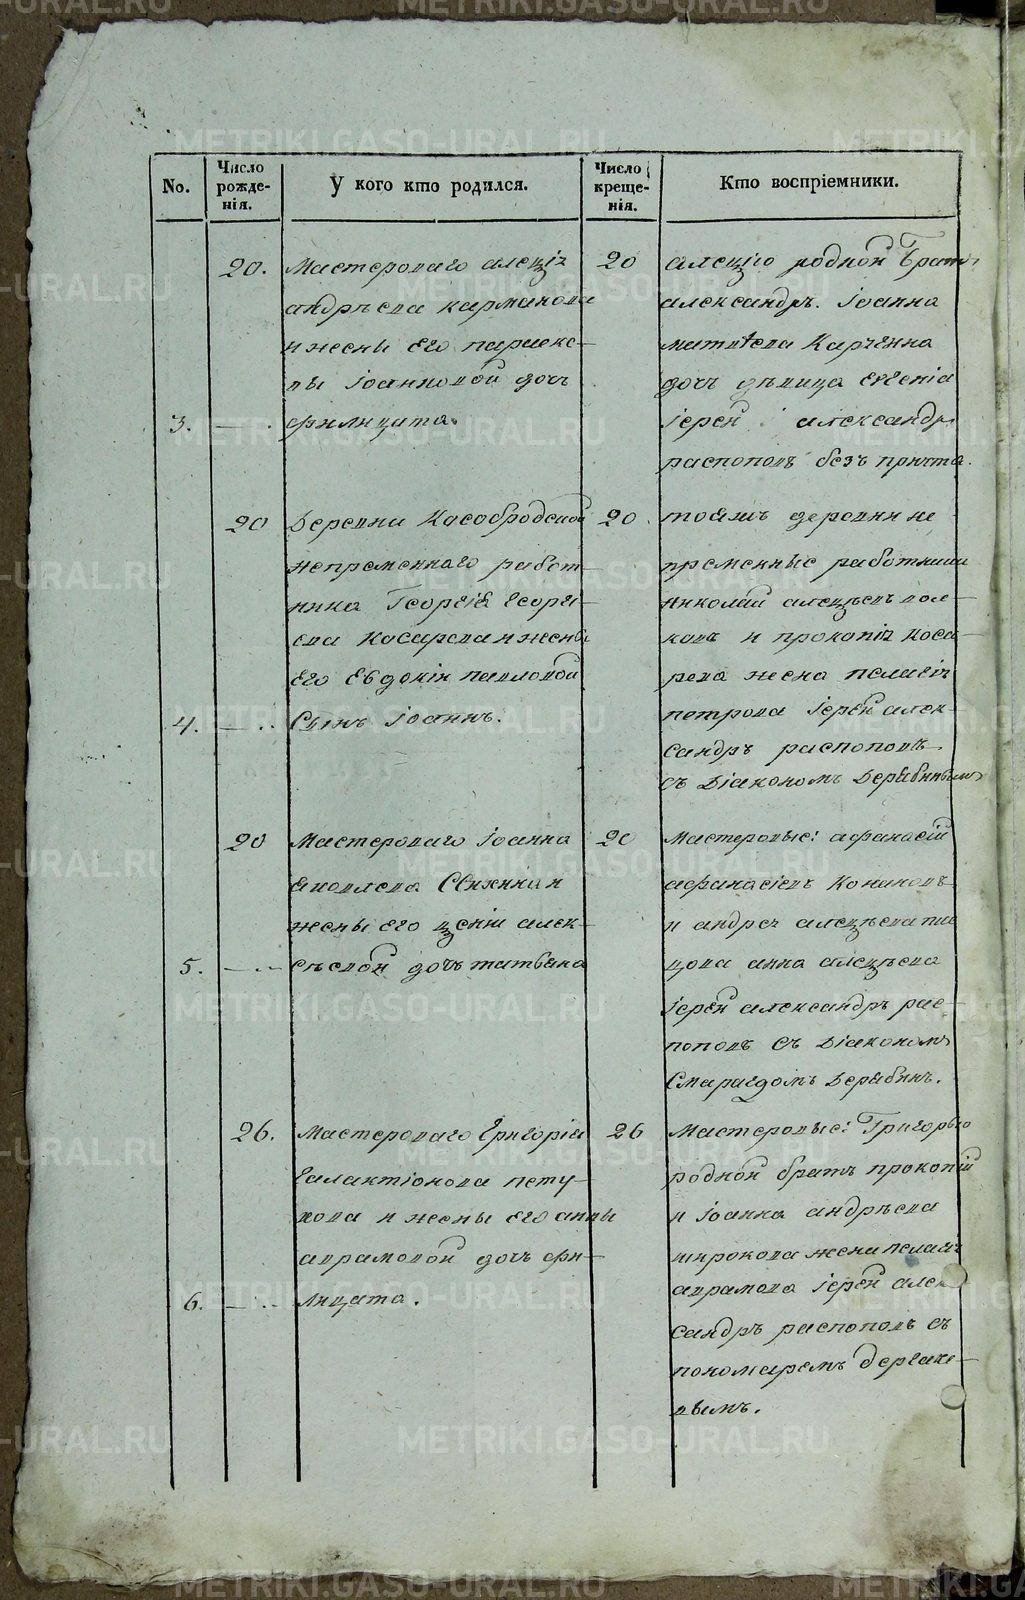 No.
Число рожденія.
У кого кто родился.
Число крещенія.
Кто воспріемники.
20. Мастероваго алеѯіа
андрѣева карманова
и жены Его параске-
вы Іоанновой дочь
3. филицата.
20 алеѯію родной братъ
александръ. Іоанна
матвѣева Карченна
дочь дѣвица Евгеніа
Іерей александръ
распоповъ безъ причта.
20 Деревни Кособродской
непременнаго работ-
ника Георгіа Георги-
ева косарева и жены
Его Евдокіи павловой
4. Сынъ Іоаннъ.
20. тоежъ деревни не
премѣнные работники
николай алеѯѣевъ вол-
ковъ и прокопіа коса-
рева жена пелагіа
петрова Іерей алек-
сандръ распоповъ
съ Діакономъ Дерябинымъ
20 Мастероваго Іоанна
яковлева жены его ѯеніи алек-
5. сѣевой дочь татьяна
20 Мастеровые: афанасій
афанасіевъ Конановъ
и андреа алеѯѣева
анна алеѯѣева
Іерей александръ рас-
поповъ съ Діакономъ
Смарагдомъ Дерябин.
26. Мастероваго Григоріа
Галактіонова пету-
хова и жены Его анны
аврамовой дочь фи-
6. лицата.
26 Мастеровые: Григорью
родной братъ прокопій
и Іоанна андрѣева
широкова жена пелагіа
аврамова Іерей алек-
сандръ распоповъ съ
пономаремъ дергаче-
вымъ.
METRIKI.GASO-URAL.RU